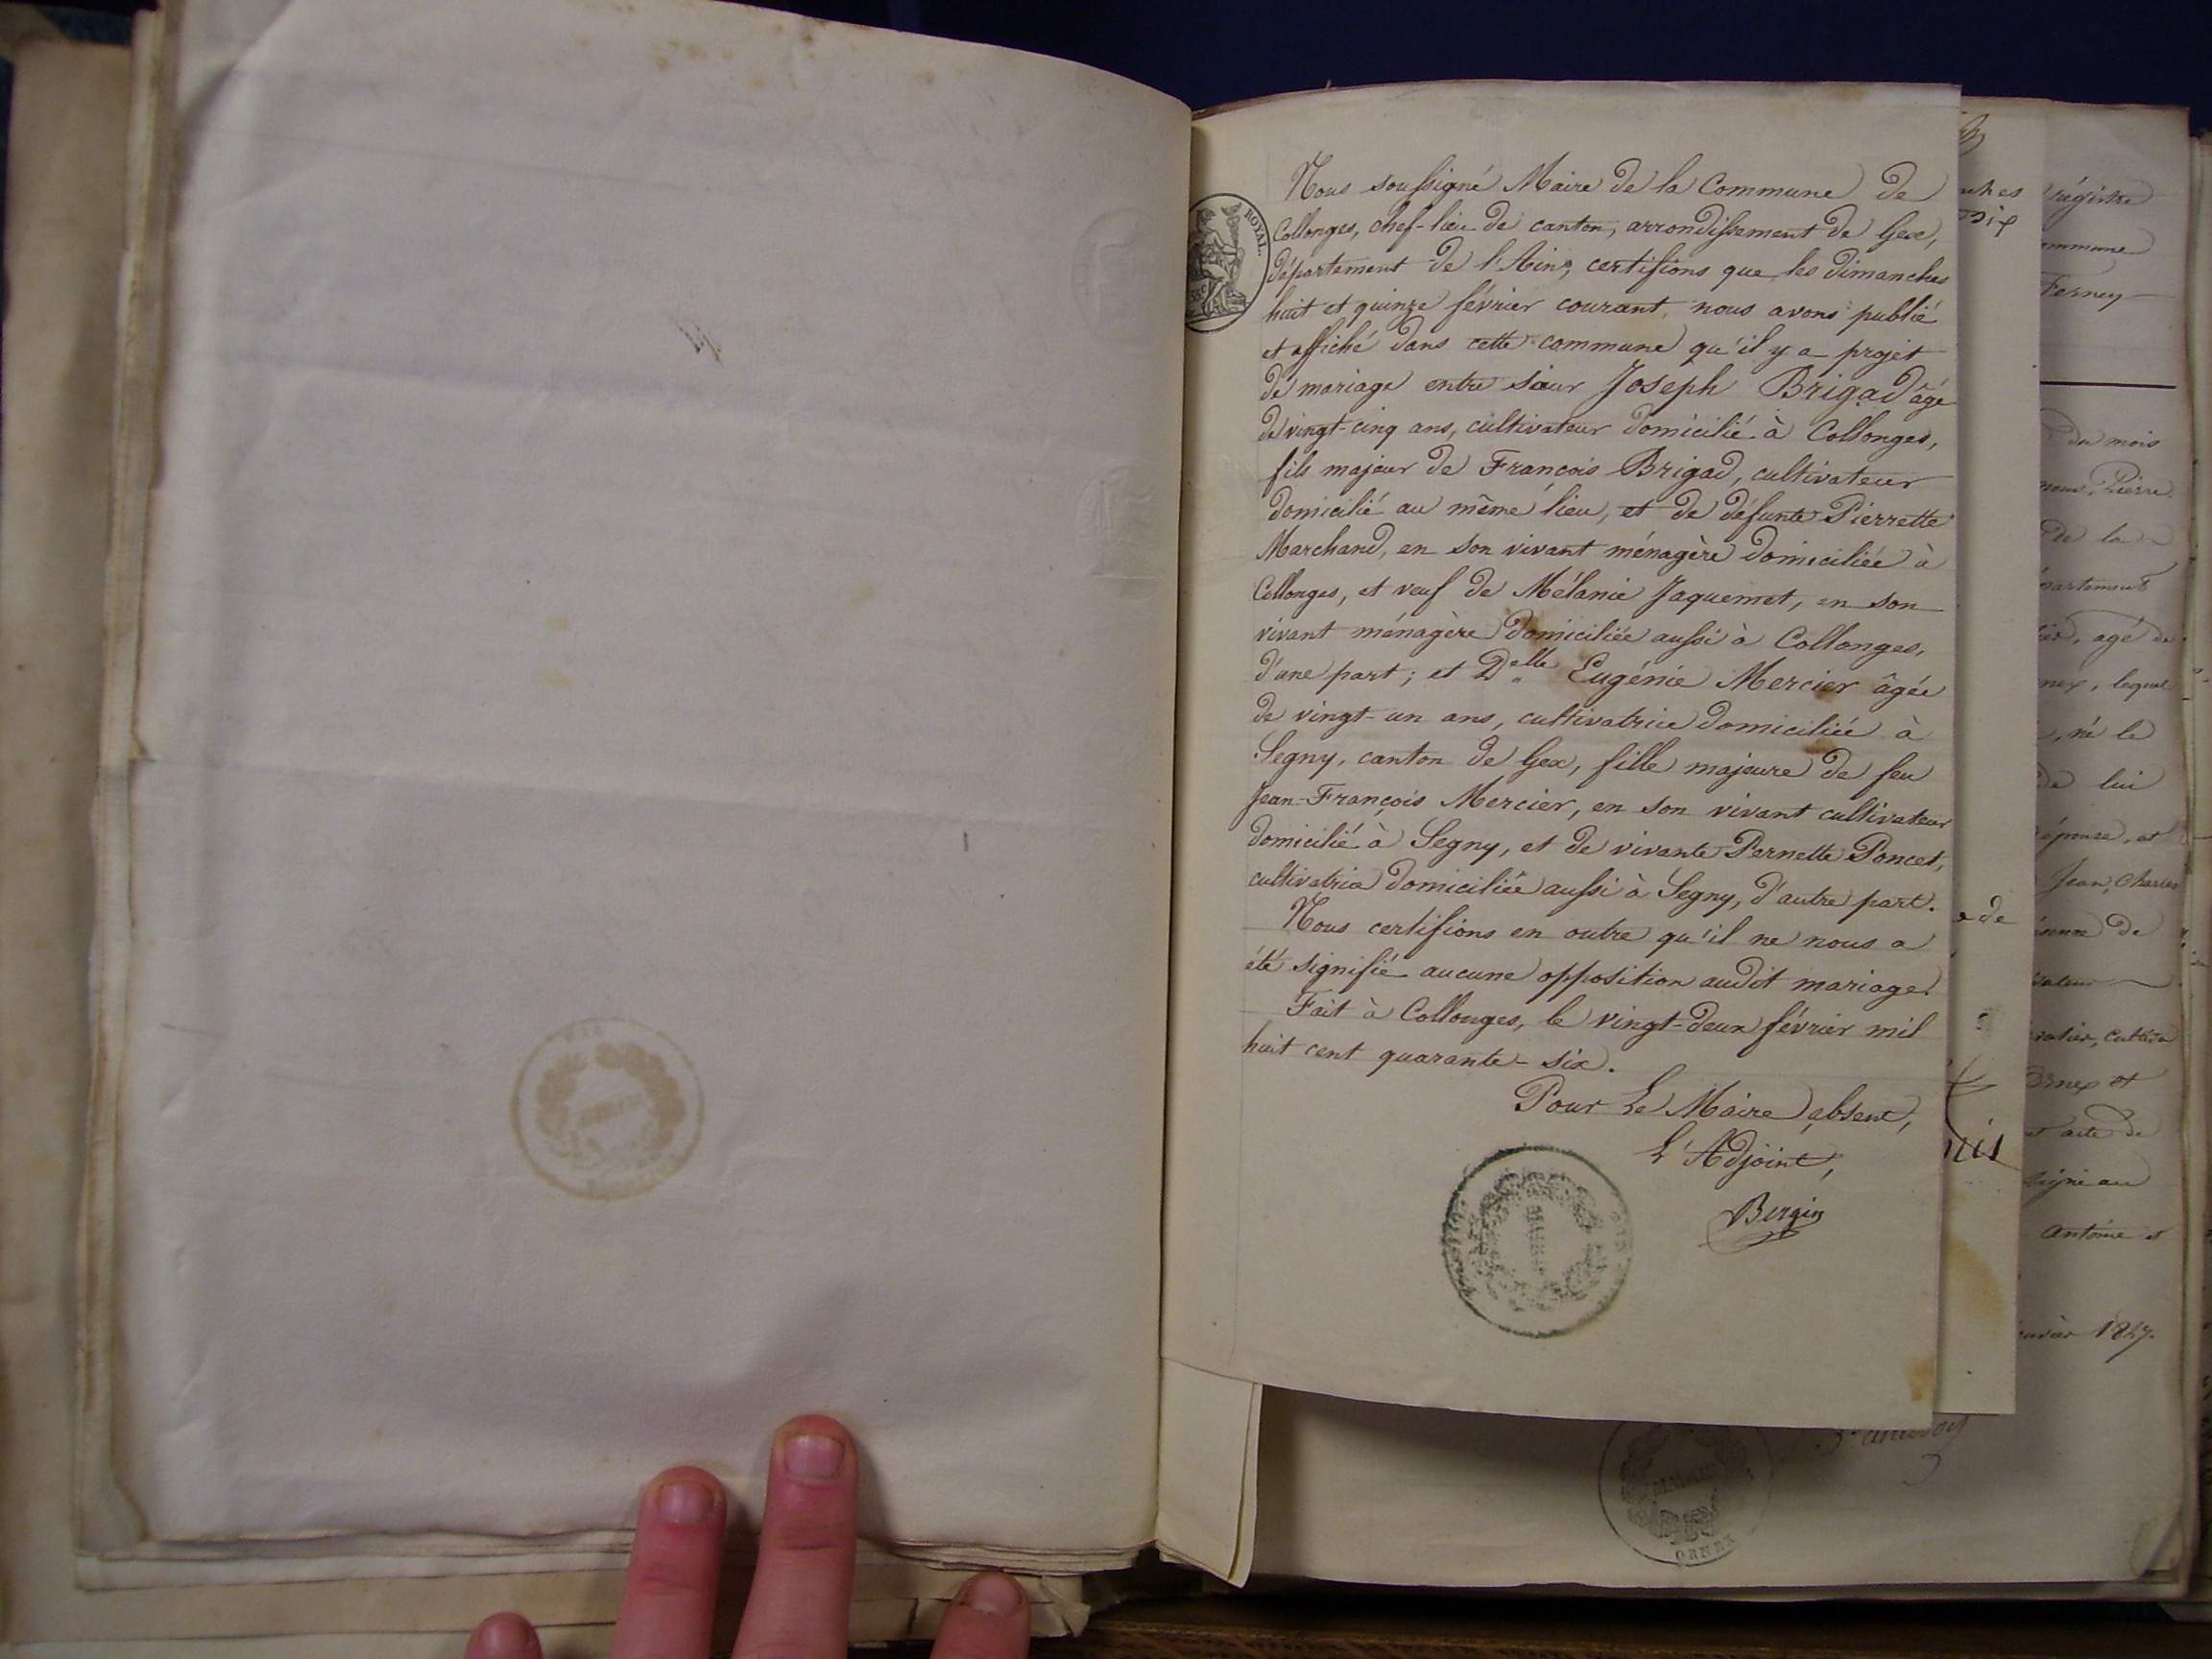 Nous soussigné Maire de la Commune de
Collonges, chef-lieu de canton, arrondissement de Gex,
département de l'Ain, certifions que les dimanches
huit et quinze février courant, nous avons publié
et affiché dans cette commune qu'il y a projet
de mariage entre sieur Joseph Brigad âgé
de vingt-cinq ans, cultivateur domicilié à Collonges,
fils majeur de François Brigad, cultivateur
domicilié au même lieu, et de défunte Pierrette
Marchand, en son vivant ménagère domiciliée à
Collonges, et veuf de Mélanie Jaquemet, en son
vivant ménagère domiciliée aussi à Collonges,
d'une part; et Delle Eugénie Mercier âgée
de vingt-un ans, cultivatrice domiciliée à
Segny, canton de Gex, fille majeure de feu
Jean-François Mercier, en son vivant cultivateur
domicilié à Segny, et de vivante Pernette Poncet,
cultivatrice domiciliée aussi à Segny, d'autre part.
Nous certifions en outre qu'il ne nous a
été signifié aucune opposition audit mariage.
Fait à Collonges, le vingt-deux février mil
huit cent quarante-six.
Pour Le Maire absent,
L'Adjoint,
Bergin
ROYAL
régistre
Ferney
du mois
Pierre
de la
agé de
lequel
né le
de lui
épouse, et
Jean, Charles
de
Ornex et
acte de
Antoine et
1847.
MAIRIE
ORNEX